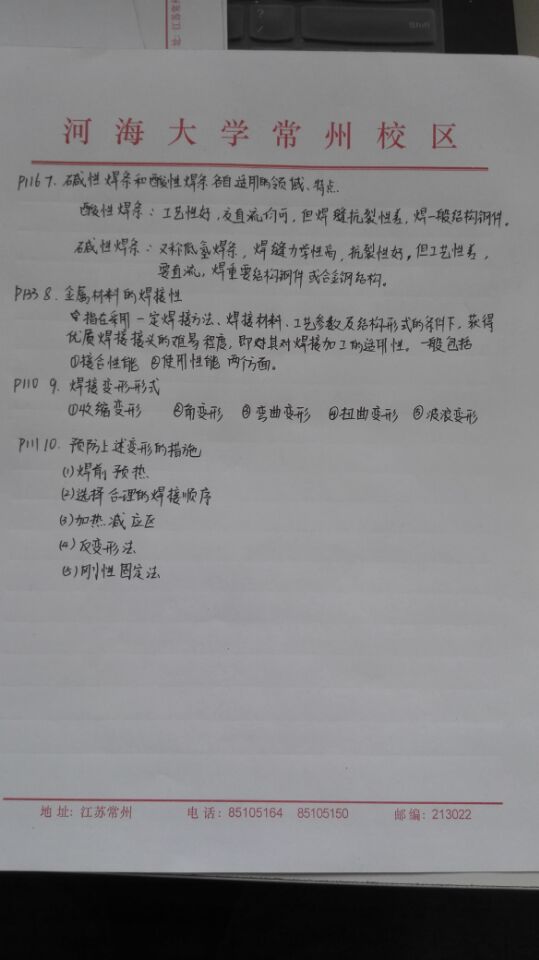 河海大学常州校区
P116 7. 碱性焊条和酸性焊条各自适用的领域、特点.
酸性焊条：工艺性好，交直流均可，但焊缝抗裂性差，焊一般结构钢件。
碱性焊条：又称低氢焊条，焊缝力学性高，抗裂性好。但工艺性差，
要直流，焊重要结构钢件或合金钢结构。
P133 8. 金属材料的焊接性
指在采用一定焊接方法、焊接材料、工艺参数及结构形式的条件下，获得
优质焊接接头的难易程度，即对其对焊接加工的适用性。一般包括
①接合性能 ②使用性能 两个方面.
P110 9. 焊接变形形式
①收缩变形 ②角变形 ③弯曲变形 ④扭曲变形 ⑤波浪变形
P111 10. 预防上述变形的措施
(1)焊前预热
(2)选择合理的焊接顺序
(3)加热减应区
(4)反变形法
(5)刚性固定法
地址: 江苏常州 电话: 85105164 85105150 邮编: 213022